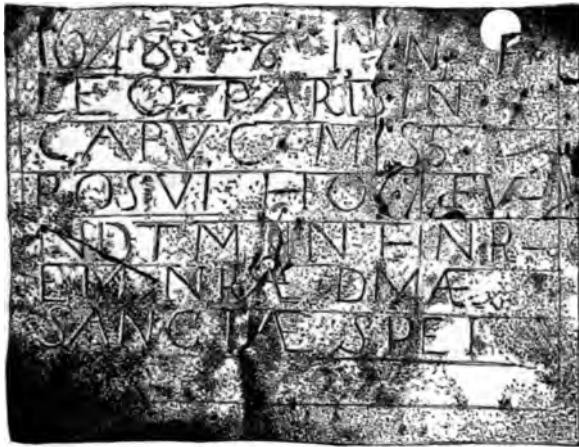 1648 · 8 · IVN · F
LEO · PARISIN
CAPVC · MISS
POSVI HOC FV-
NDTM IN HNR-
EM NRÆ DMÆ
SANCTÆ SPEI